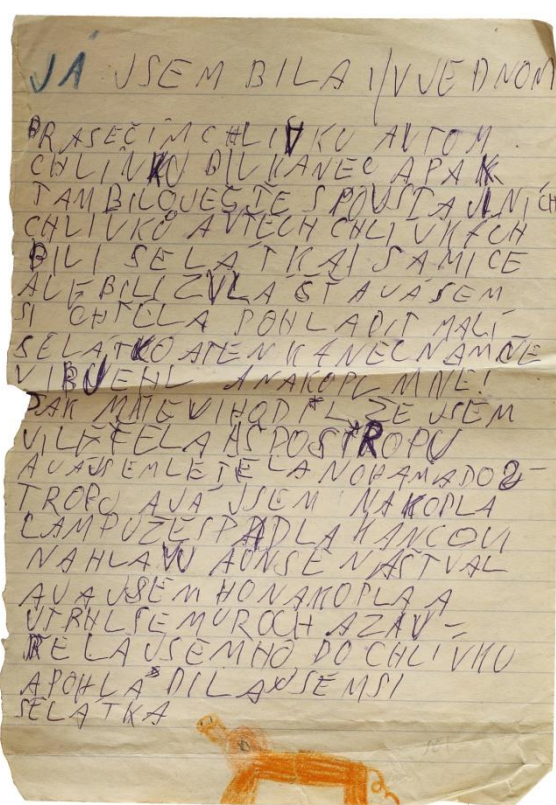 JÁ JSEM BILA I V JEDNOM
PRASEČÍM CHLÍVKU A V TOM
CHLÍVKU BIL KANEC A PAK
TAM BILO JEŠTĚ SPOUSTA JINÍCH
CHLIVKŮ A V TECH CHLIVKÁCH
BILI SELÁTKA I SAMICE
ALE BILI ZVLÁŠŤ A JÁ SEM
SI CHTĚLA POHLADIT MALÍ
SELÁTKO A TEN KANEC NA MNE
VIBJEHL A NAKOPL MNE!
PAK MNE VIHODIL ŽE JSEM
VILÍTĚLA AŠ PO STROPU
A JÁ JSEM LETĚLA NOHAMA DO S-
TROPU A JÁ JSEM NAKOPLA
LAMPU ŽE SPADLA KANCOVI
NA HLAVU A ON SE NAŠTVAL
A JÁ JSEM HO NAKOPLA A
UTRHL SE MU ROCH A ZAV-
ŘELA JSEM HO DO CHLÍVKU
A POHLADILA JSEM SI
SELÁTKA